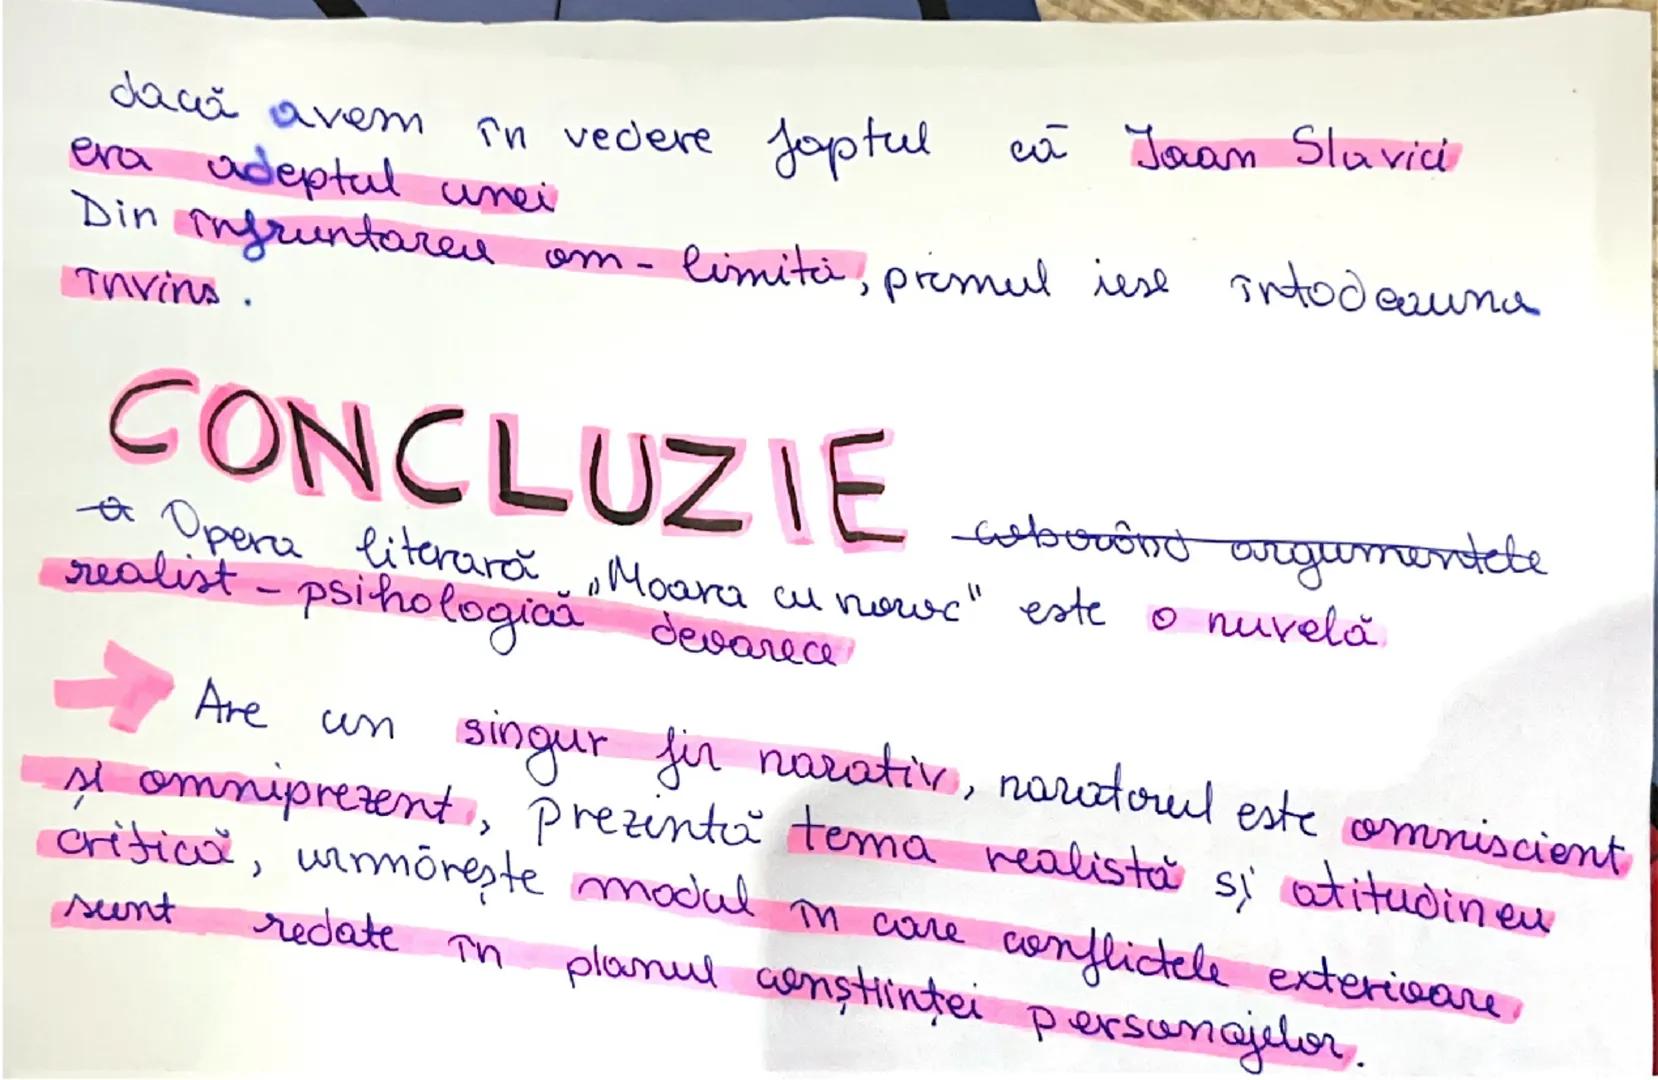 dacă avem în vedere faptul că Ioan Slavici
era adeptul unei
Din înfruntarea om - limită, primul iese întodeauna
învins.
CONCLUZIE
Opera literară „Moara cu noroc" este o nuvelă
realist - psihologică deoarece
Are un singur fir narativ, naratorul este omniscient
și omniprezent, prezintă tema realistă și atitudinea
critică, urmărește modul în care conflictele exterioare
sunt redate în planul conștiinței personajelor.